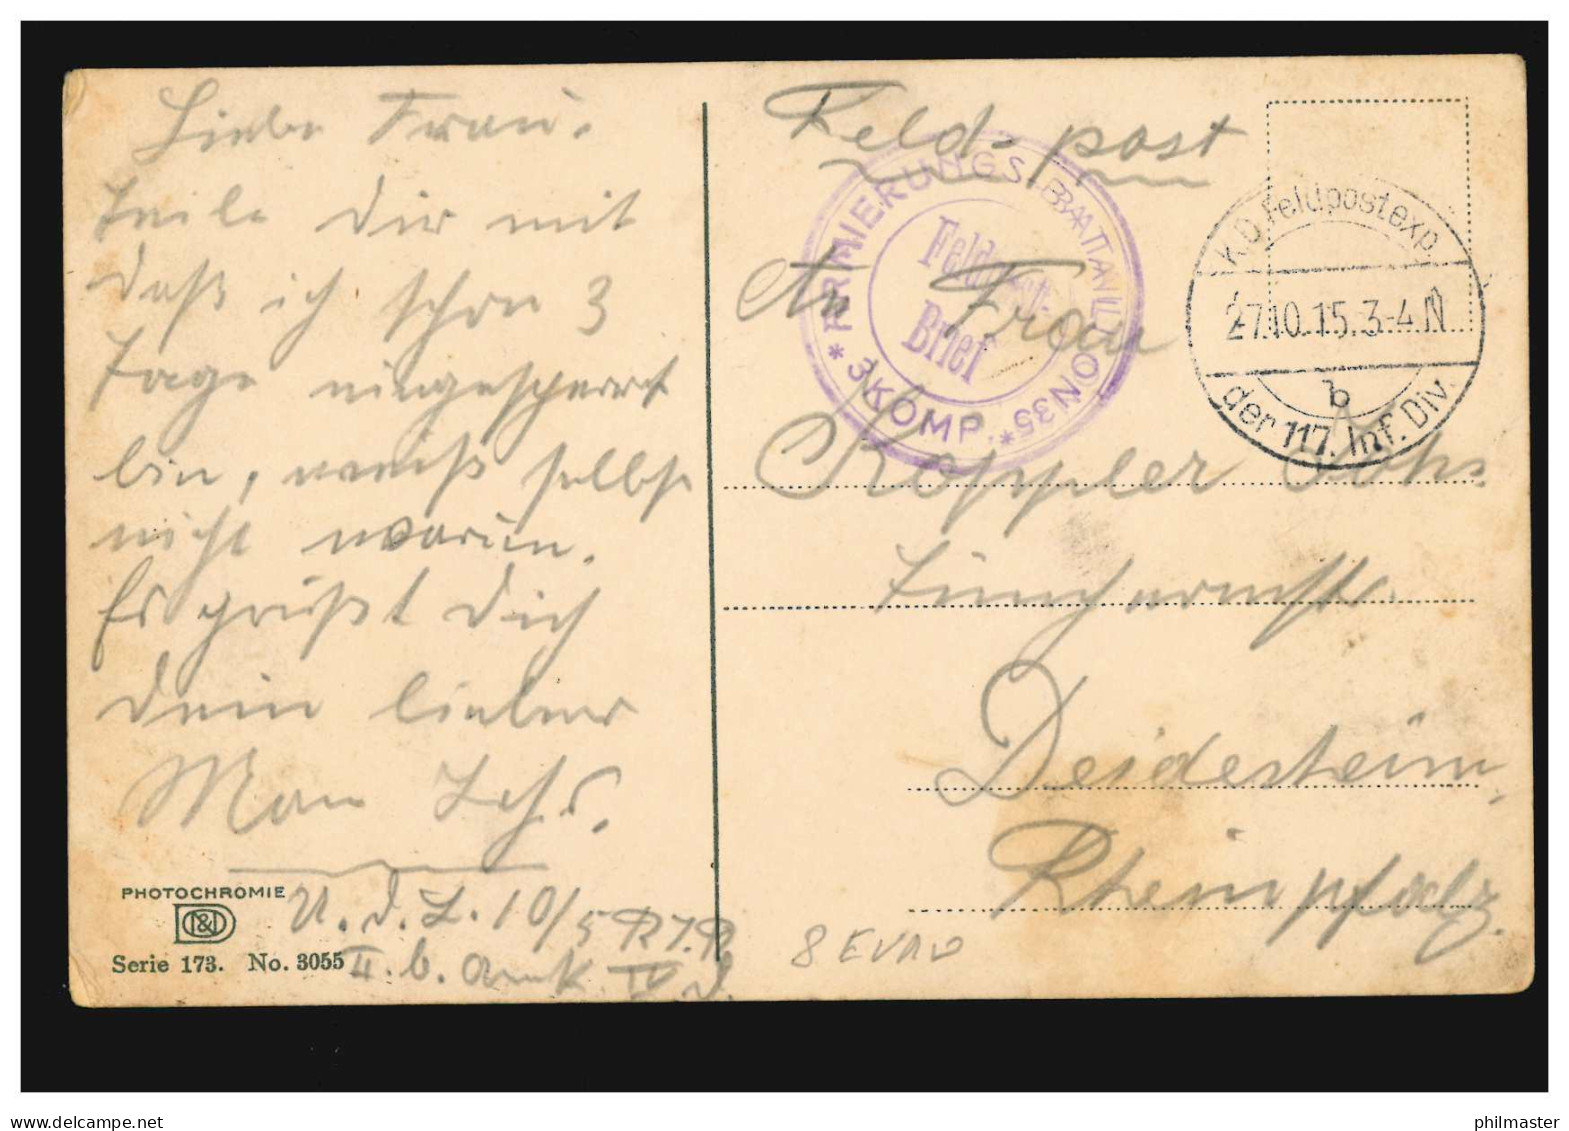 Liebe Frau.
teile Dir mit
daß ich schon 3
Tage eingesperrt
bin, weiß selbst
nicht warum.
Es grüßt Dich
Dein lieber
Man Johs.
PHOTOCHROMIE
Serie 173. No. 3055
U. d. L. 10/5 R I. R
II. b. Armk.
Feld-post
ARMIERUNGS BATAILLON 35
* 3 KOMP. *
Feldpost-
Brief
K.D. Feldpostexp.
27.10.15. 3-4 N
b
der 117. Inf. Div.
An Frau
Koppler Johs.
Deidesheim,
Rheinpfalz.
delcampe.net
philmaster